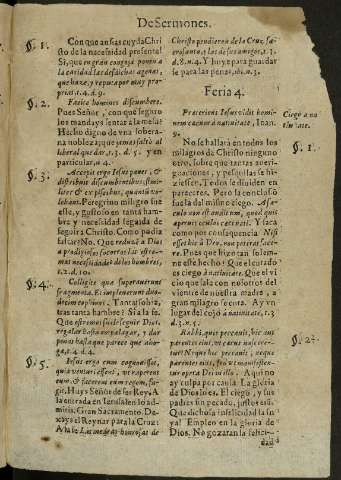 De Sermones.
§. 1.
Con que ansias cuyda Chri-
sto de la necesidad presente!
Si, que
a la caridad las desdichas agenas,
que haze, y reputa por muy pro-
prias, t. 4. d. 9.
§. 2.
Facite homines discumbere.
Pues Señor, con que seguro
los manda ys sentar a la mesa?
Hecho digno de vna sobera-
na nobleza; que jamas faltò al
liberal que dar, t. 3. d. 5. y en
particular, n. 4.
§. 3.
Accepit ergo Iesus panes, &
distribuit discumbentibus, simi-
liter & ex piscibus, quantū vo-
lebant. Peregrino milagro fue
este, y gustoso en tanta ham-
bre y necesidad seguida de
seguir a Christo. Como podia
faltar? No. Que reduzá a Dios
a prodigiosos socorros las estre-
mas necesidades de los hombres,
t. 2. d. 10.
§. 4.
Colligite quæ superauerunt
fragmenta. Et impleuerunt duo-
decim cophinos. Tantas sobras,
tras tanta hambre? Sia la fe.
Que estremos suele seguir Dios,
regalar hasta empalagar, y dar
penas hasta que parece que aho-
ga, t. 4. d. 4.
§. 5.
Iesus ergo cum cognouisset,
quia venturi essent, vt raperent
eum & facerent eum regem, fu-
git. Huys Señor de ser Rey. A
la entrada en Ierusalen lo ad-
mitis. Gran Sacramento. De-
xays el Reynar para la Cruz:
A la fe. Las medras honrosas de
Christo pendieron de la Cruz, sa-
crosanta, y las de sus amigos, t. 3.
d. 8. n. 4. Y huye para guardar
se para las penas, ibi, n. 3.
Feria 4.
Præteriens Iesus vidit homi-
nem cæcum à natiuitate, Ioan.
9.
Ciego a na
tiuitate.
§. 1.
No se hallará en todos los
milagros de Christo ninguno
otro, sobre que tantas aueri-
guaciones, y pesquisas se hi-
ziessen. Todos se diuiden en
pareceres. Pero la conclusió
fue la del mismo ciego. A sæ-
culo non est auditum, quod quis
aperuit oculos cæci nati. Y saca
como por consequencia. Nisi
esset hic à Deo, non poterat face-
re. Pues que hizo tan solem-
ne este hecho? Que el curado
es ciego à natiuitate. Que el vi
cio que sala con nosotros del
vientre de nuestra madre, a
gran milagro se cura. Ay vn
lugar del cojo à natiuitate, t. 3
d. 3. n. 5.
§. 2.
Rabbi, quis peccauit, hic aut
parentes eius, vt cæcus nasceré-
tur? Neque hic peccauit, neque
parentes eius, sed vt manifesten-
tur opera Dei in illo. Aqui no
ay culpa por causa. La gloria
de Dios lo es. El ciego, y sus
padres sin pecado, justos eran.
Que dichosa infelicidad la su-
ya! Empleo en la gloria de
Dios. No gozaran la felici-
dad